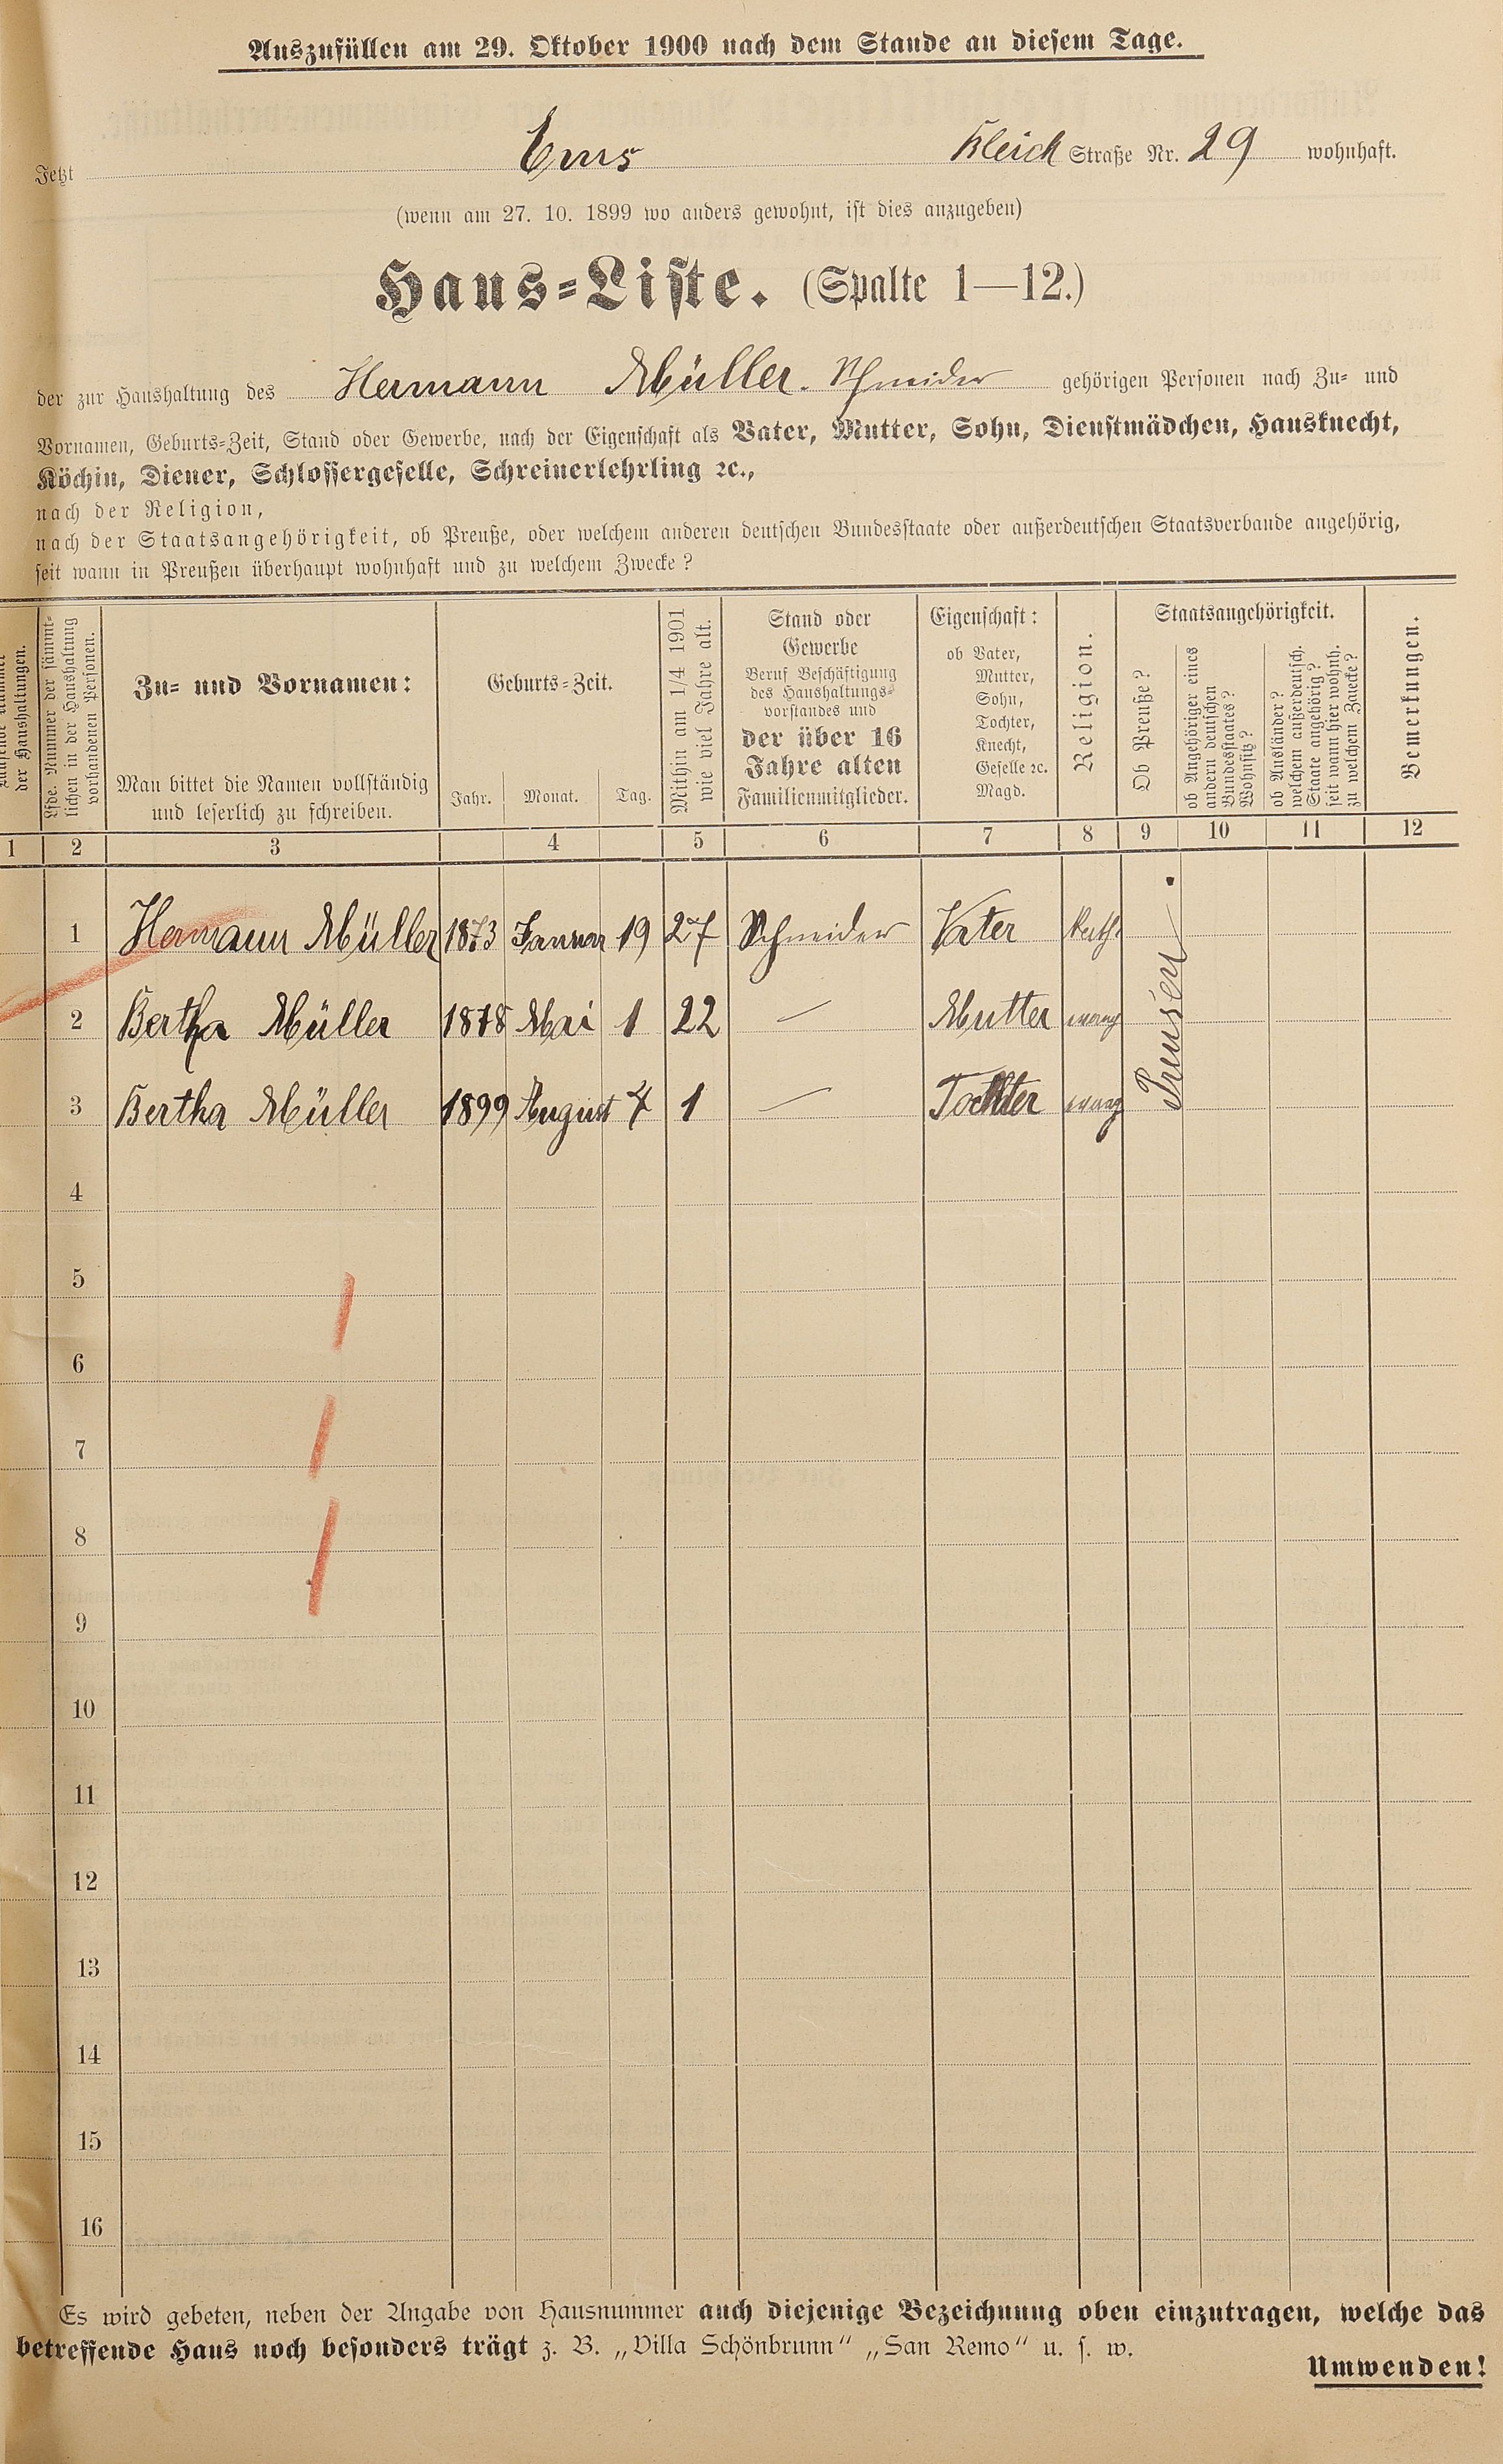 Auszufüllen am 29. Oktober 1900 nach dem Stande an diesem Tage.
Jetzt Ems Bleich Straße Nr. 29 wohnhaft.
(wenn am 27. 10. 1899 wo anders gewohnt, ist dies anzugeben)
Haus-Liste. (Spalte 1—12.)
der zur Haushaltung des Hermann Müller. Schneider gehörigen Personen nach Zu- und
Vornamen, Geburts-Zeit, Stand oder Gewerbe, nach der Eigenschaft als Vater, Mutter, Sohn, Dienstmädchen, Hausknecht,
Köchin, Diener, Schlossergeselle, Schreinerlehrling ꝛc.,
nach der Religion,
nach der Staatsangehörigkeit, ob Preuße, oder welchem anderen deutschen Bundesstaate oder außerdeutschen Staatsverbande angehörig,
seit wann in Preußen überhaupt wohnhaft und zu welchem Zwecke?
Nummer
der Haushaltungen.
Lfde. Nummer der sämmt-
lichen in der Haushaltung
vorhandenen Personen.
Zu- und Vornamen:
Man bittet die Namen vollständig
und leserlich zu schreiben.
Geburts-Zeit.
Jahr. Monat. Tag.
Mithin am 1/4 1901
wie viel Jahre alt.
Stand oder
Gewerbe
Beruf Beschäftigung
des Haushaltungs-
vorstandes und
der über 16
Jahre alten
Familienmitglieder.
Eigenschaft:
ob Vater,
Mutter,
Sohn,
Tochter,
Knecht,
Geselle ꝛc.
Magd.
Religion.
Staatsangehörigkeit.
Ob Preuße?
ob Angehöriger eines
andern deutschen
Bundesstaates?
Wohnsitz?
ob Ausländer?
welchem außerdeutsch.
Staate angehörig?
seit wann hier wohnh.
zu welchem Zwecke?
Bemerkungen.
1 2 3 4 5 6 7 8 9 10 11 12
1 Hermann Müller 1873 Januar 19 27 Schneider Vater Kath.
2 Bertha Müller 1878 Mai 1 22 — Mutter evang
3 Bertha Müller 1899 August 7 1 — Tochter evang
Preusen
4
5
6
7
8
9
10
11
12
13
14
15
16
Es wird gebeten, neben der Angabe von Hausnummer auch diejenige Bezeichnung oben einzutragen, welche das
betreffende Haus noch besonders trägt z. B. „Villa Schönbrunn“ „San Remo“ u. s. w.
Umwenden!